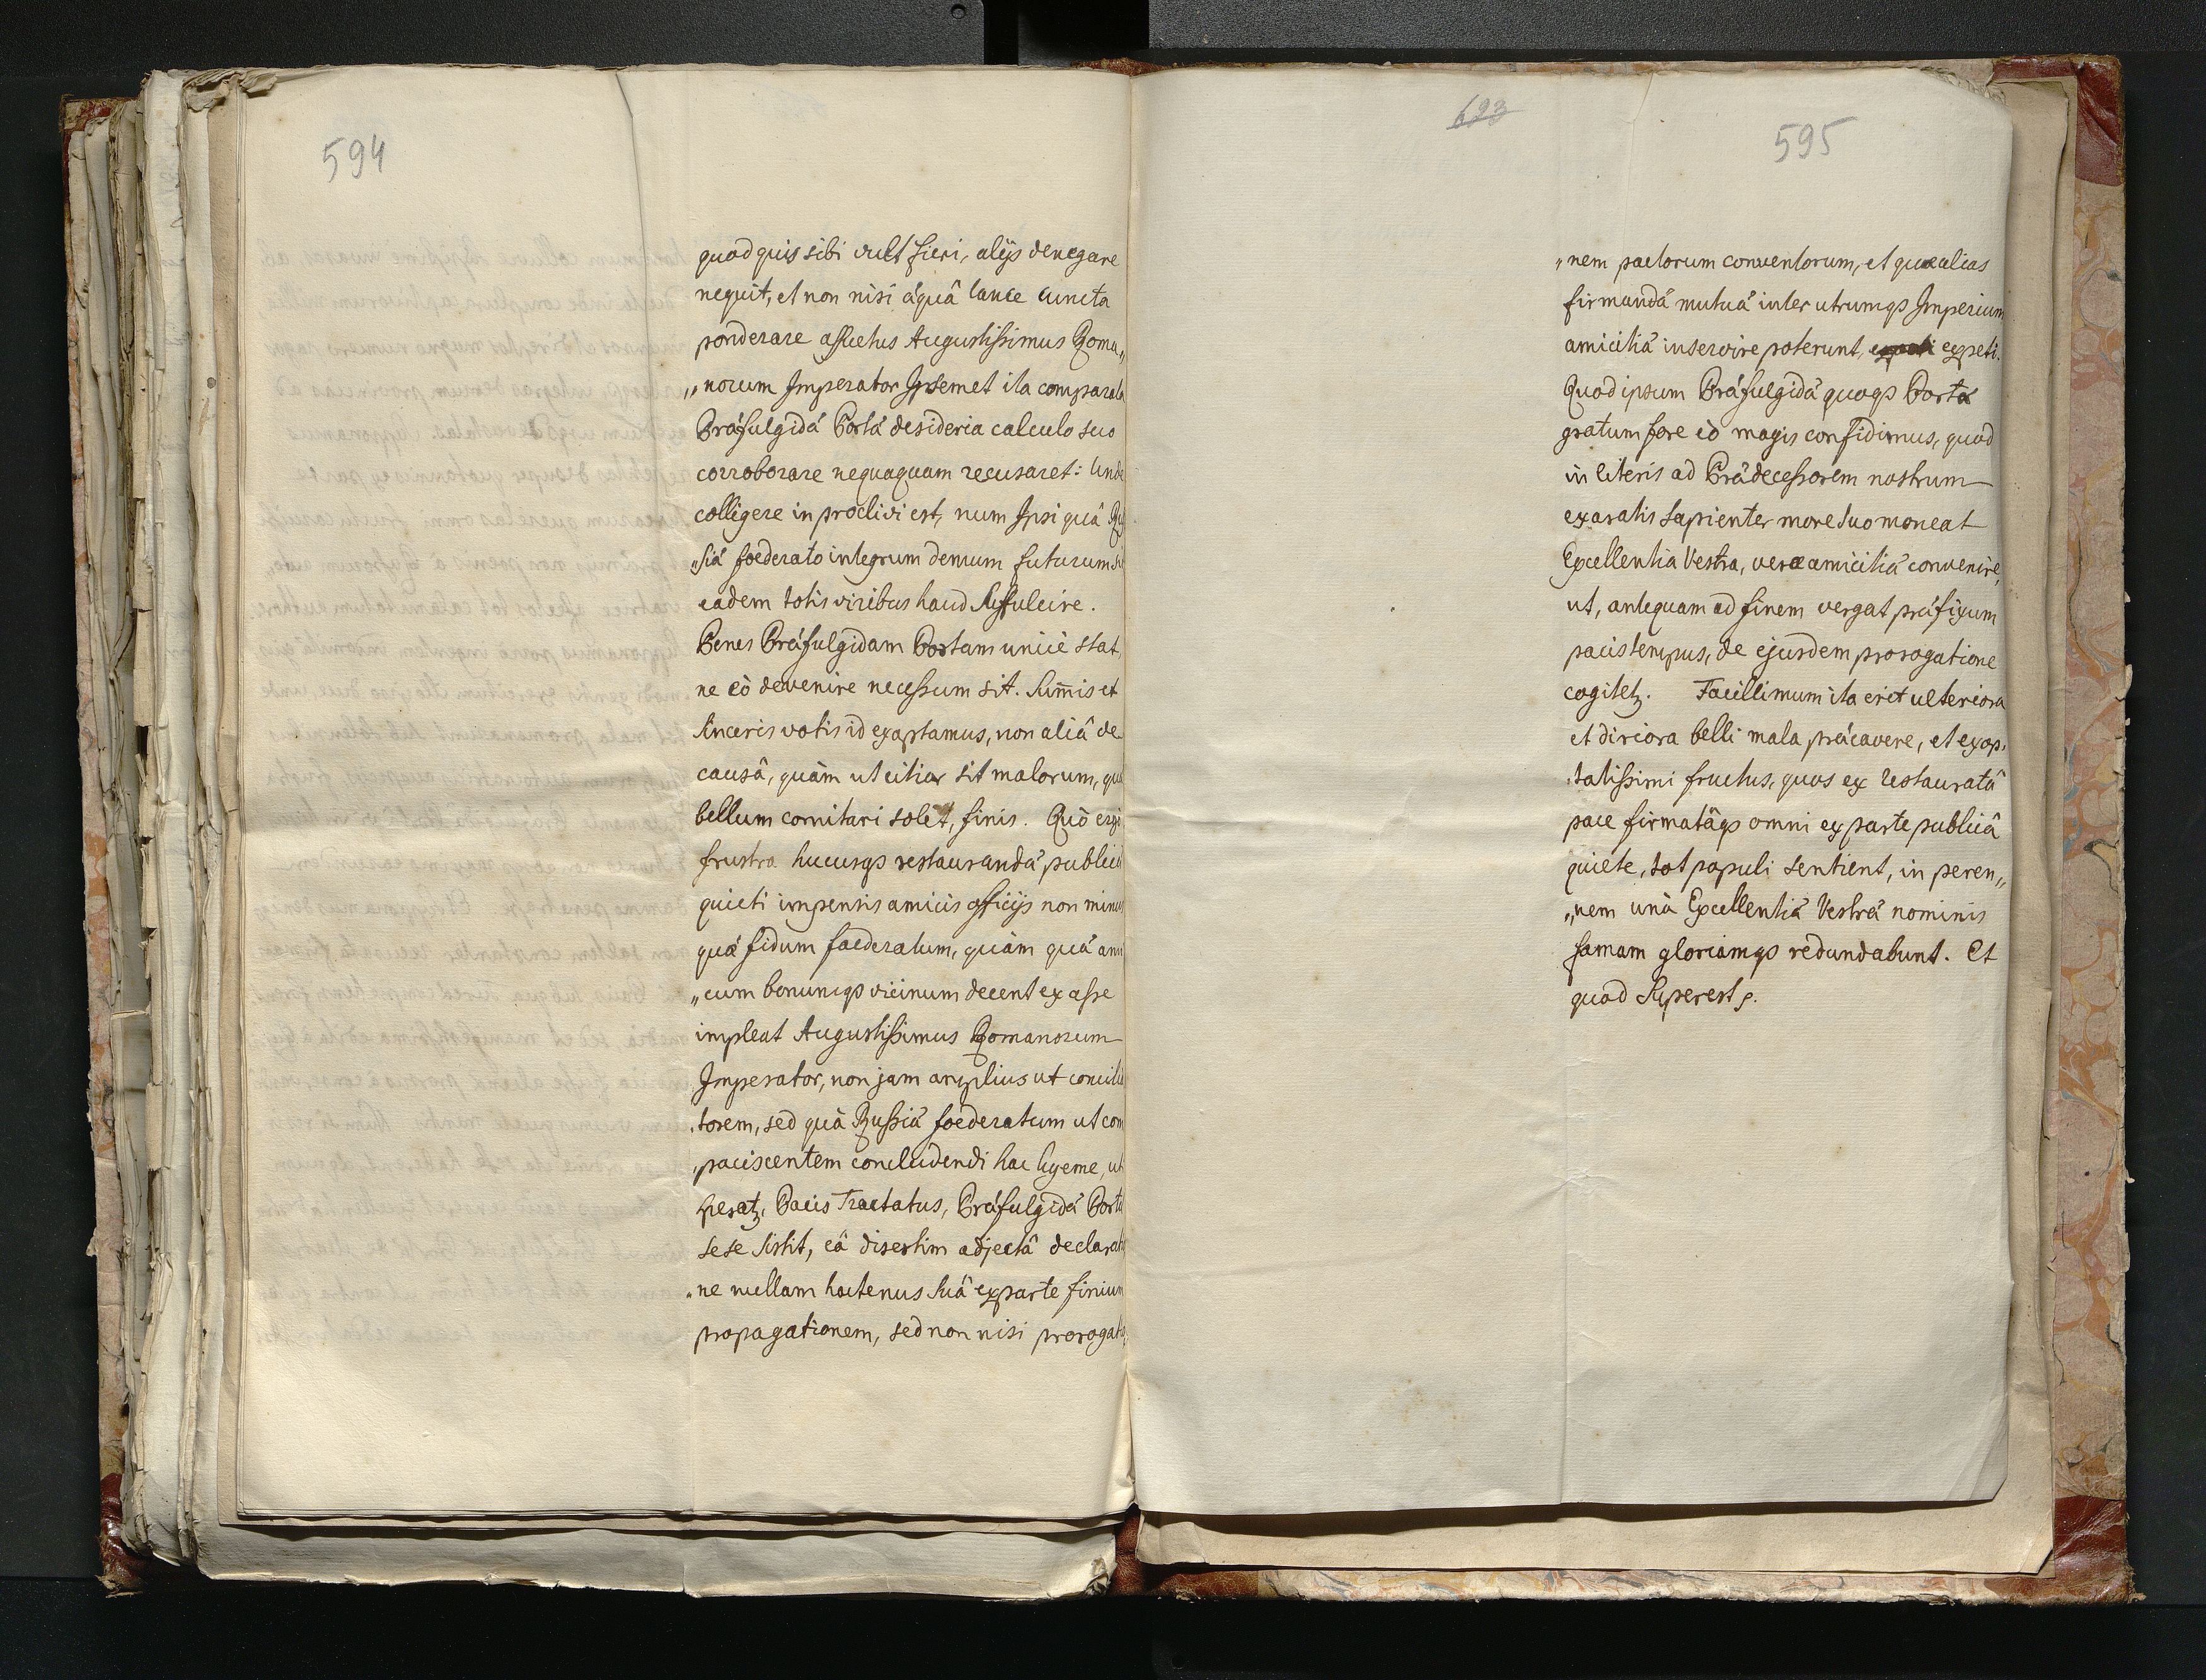 594
quod quis sibi vult fieri, alijs denegare
nequit, et non nisi áquâ lance cuncta
ponderare assuetus Augustissimus Roma„
„norum Imperator Ipsemet ita comparata
Prǽfulgidǽ Portǽ desideria calculo suo
corroborare nequaquam recusaret: Unde
colligere in proclivi est, num Ipsi quà Ruſ
„siǽ foederato integrum demum futurum sit
eadem totis viribus haud suffulcire.
Penes Prǽfulgidam Portam unicè stat,
ne eò devenire necessum sit. Sum̃is et
sinceris votis id exoptamus, non aliâ de
causâ, quàm ut citior sit malorum, quæ
bellum comitari solet, finis. Quò ergo
frustra hucusqȝ restaurandǽ publicǽ
quieti impensis amicis officijs non minus
quǽ fidum foederatum, quàm quǽ ami
„cum bonumqȝ vicinum decent ex asse
impleat Augustissimus Romanorum
Imperator, non jam amplius ut concilia
torem, sed quà Russiǽ foederatum ut com
„paciscentem concludendi hac hyeme, uti
speratȝ, Pacis Tractatus, Prǽfulgidǽ Portǽ
sese sistit, eâ disertim adjectâ declaratio
„ne nullam hactenus Suâ ex parte finium
propagationem, sed non nisi prorogatio„
693
595
„nem pactorum conventorum, et quæ alias
firmandǽ mutuǽ inter utrumqȝ Imperium
amicitiǽ inservire poterunt, expeti.
Quod ipsum Prǽfulgidǽ quoqȝ Portæ
gratum fore eò magis confidimus, quod
in literis ad Prǽdecessorem nostrum
exaratis sapienter more suo moneat
Excellentia Vestra, veræ amicitiǽ convenire,
ut, antequam ad finem vergat prǽfixum
pacis tempus, de ejusdem prorogatione
cogitetȝ. Facillimum ita erit ulteriora
et diriora belli mala prǽcavere, et exop„
„tatissimi fructus, quos ex restauratâ
pace firmatâqȝ omni ex parte publicâ
quiete, tot populi sentient, in peren„
„nem unà Excellentiǽ Vestrǽ nominis
famam gloriamqȝ redundabunt. Et
quod superest ꝛ.